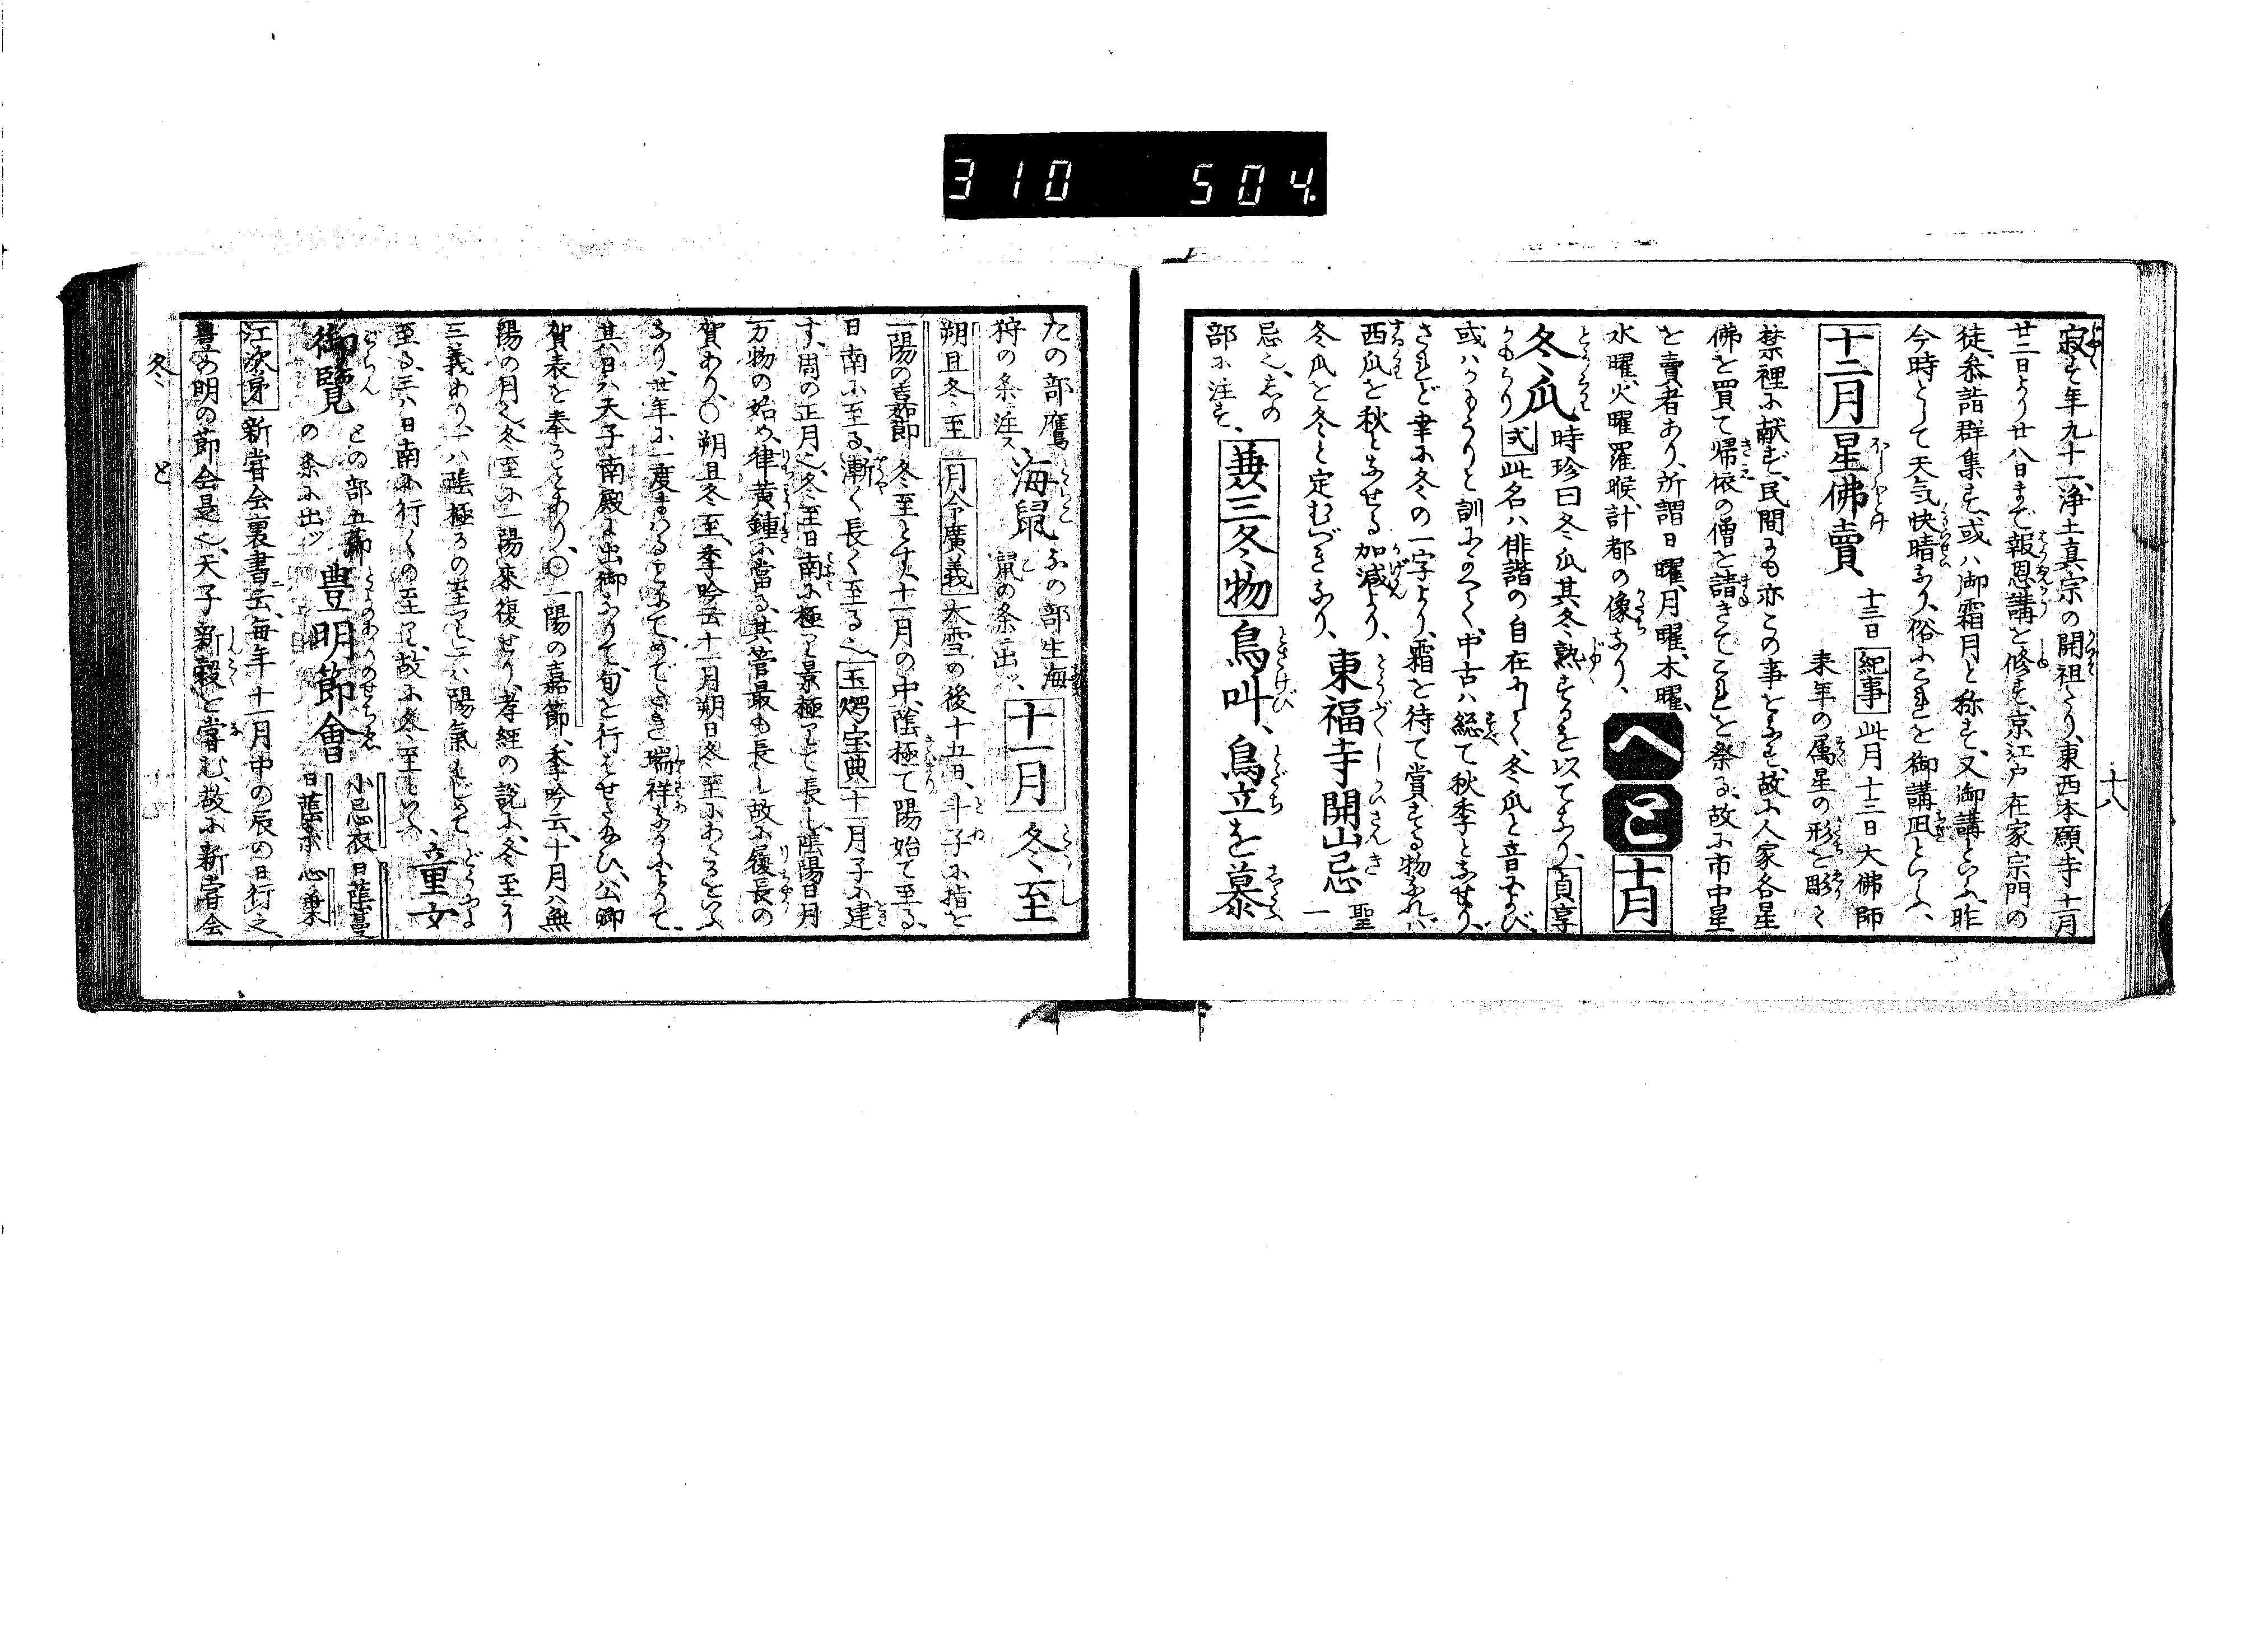 310 504.
十八
寂す年九十、浄土真宗の開祖たり、東西本願寺十一月
廿二日より廿八日まで報恩講を修す、京江戸在家宗門の
徒、参詣群集す、或ハ御霜月と称す、又御講といふ、昨
今時として天気快晴なり、俗にこれを御講凪といふ、
十二月 星佛賣 十三日 紀事 此月十三日大佛師
来年の属星の形を彫く
禁裡に献ず、民間にも亦この事をなす、故に人家各星
佛を買て帰依の僧を請きてこれを祭る、故に市中星
を賣者あり、所謂日曜、月曜、木曜、
水曜、火曜、羅睺、計都の像なり、 へ と 十月
冬瓜 時珍曰冬瓜其冬熟するを以てなり、貞享
式 此名ハ俳諧の自在にして、冬瓜と音によび、
或ハかもうりと訓にのべて、中古ハ総て秋季となせり、
されど幸に冬の一字より、霜を待て賞する物なれバ
西瓜を秋となせる加減より、
冬瓜を冬と定むべきなり、 東福寺開山忌 聖一
忌也、志の
部に注す、 兼三冬物 鳥叫、鳥立を慕
たの部鷹
狩の条ニ注ス、 海鼠 なの部生海
鼠の条ニ出ッ、 十一月 冬至
朔旦冬至 月令廣義 大雪の後十五日、斗子に指を
一陽の嘉節 冬至とす、十一月の中、陰極て陽始て至る、
日南に至る、漸く長く至る也、玉燭宝典 十一月子に建
す、周の正月也、冬至日南に極つて景極つて長し、陰陽日月
万物の始め、律黄鐘に當る、其管最も長し、故に履長の
賀あり、〇朔旦冬至、季吟云十一月朔日冬至にあたるをいふ
なり、廿年に一度まわることにて、めでたき瑞祥なるによりて、
其日ハ天子南殿に出御なりて、旬を行ハせたまひ、公卿
賀表を奉ることあり、〇一陽の嘉節、季吟云、十月ハ無
陽の月也、冬至に一陽来復せり、孝経の説に、冬至に
三義あり、一ハ陰極るの至つて、二ハ陽氣はじめて
至る、三ハ日南に行くの至つて、故に冬至といふ、 童女
御覽 との部五節
の条に出ッ 豊明節會 小忌衣 日蔭蔓
日蔭糸 心葉
江次第 新嘗会裏書ニ云、毎年十一月中の辰の日行之、
豊の明の節会是也、天子新穀を嘗む、故に新嘗会
冬 と